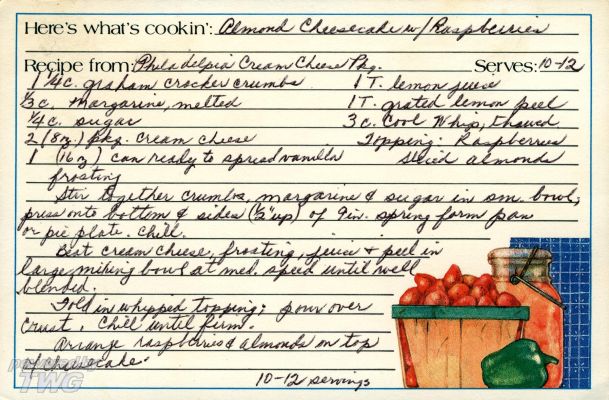 Here's what's cookin': Almond Cheesecake w/ Raspberries
Recipe from: Philadelpia Cream Cheese Pkg. Serves: 10-12
1 1/4 c. graham cracker crumbs
1/3 c. margarine, melted
1/4 c. sugar
2 (8 oz) pkg. cream cheese
1 (16 oz) can ready to spread vanilla
frosting
1 T. lemon juice
1 T. grated lemon peel
3 c. Cool Whip, thawed
Topping: Raspberries
Sliced almonds
Stir together crumbs, margarine & sugar in sm. bowl;
press onto bottom & sides (1/2" up) of 9 in. spring form pan
or pie plate. Chill.
Beat cream cheese, frosting, juice & peel in
large mixing bowl at med. speed until well
blended.
Fold in whipped topping; pour over
crust. Chill until firm.
Arrange raspberries & almonds on top
of cheesecake.
10-12 servings
TWG